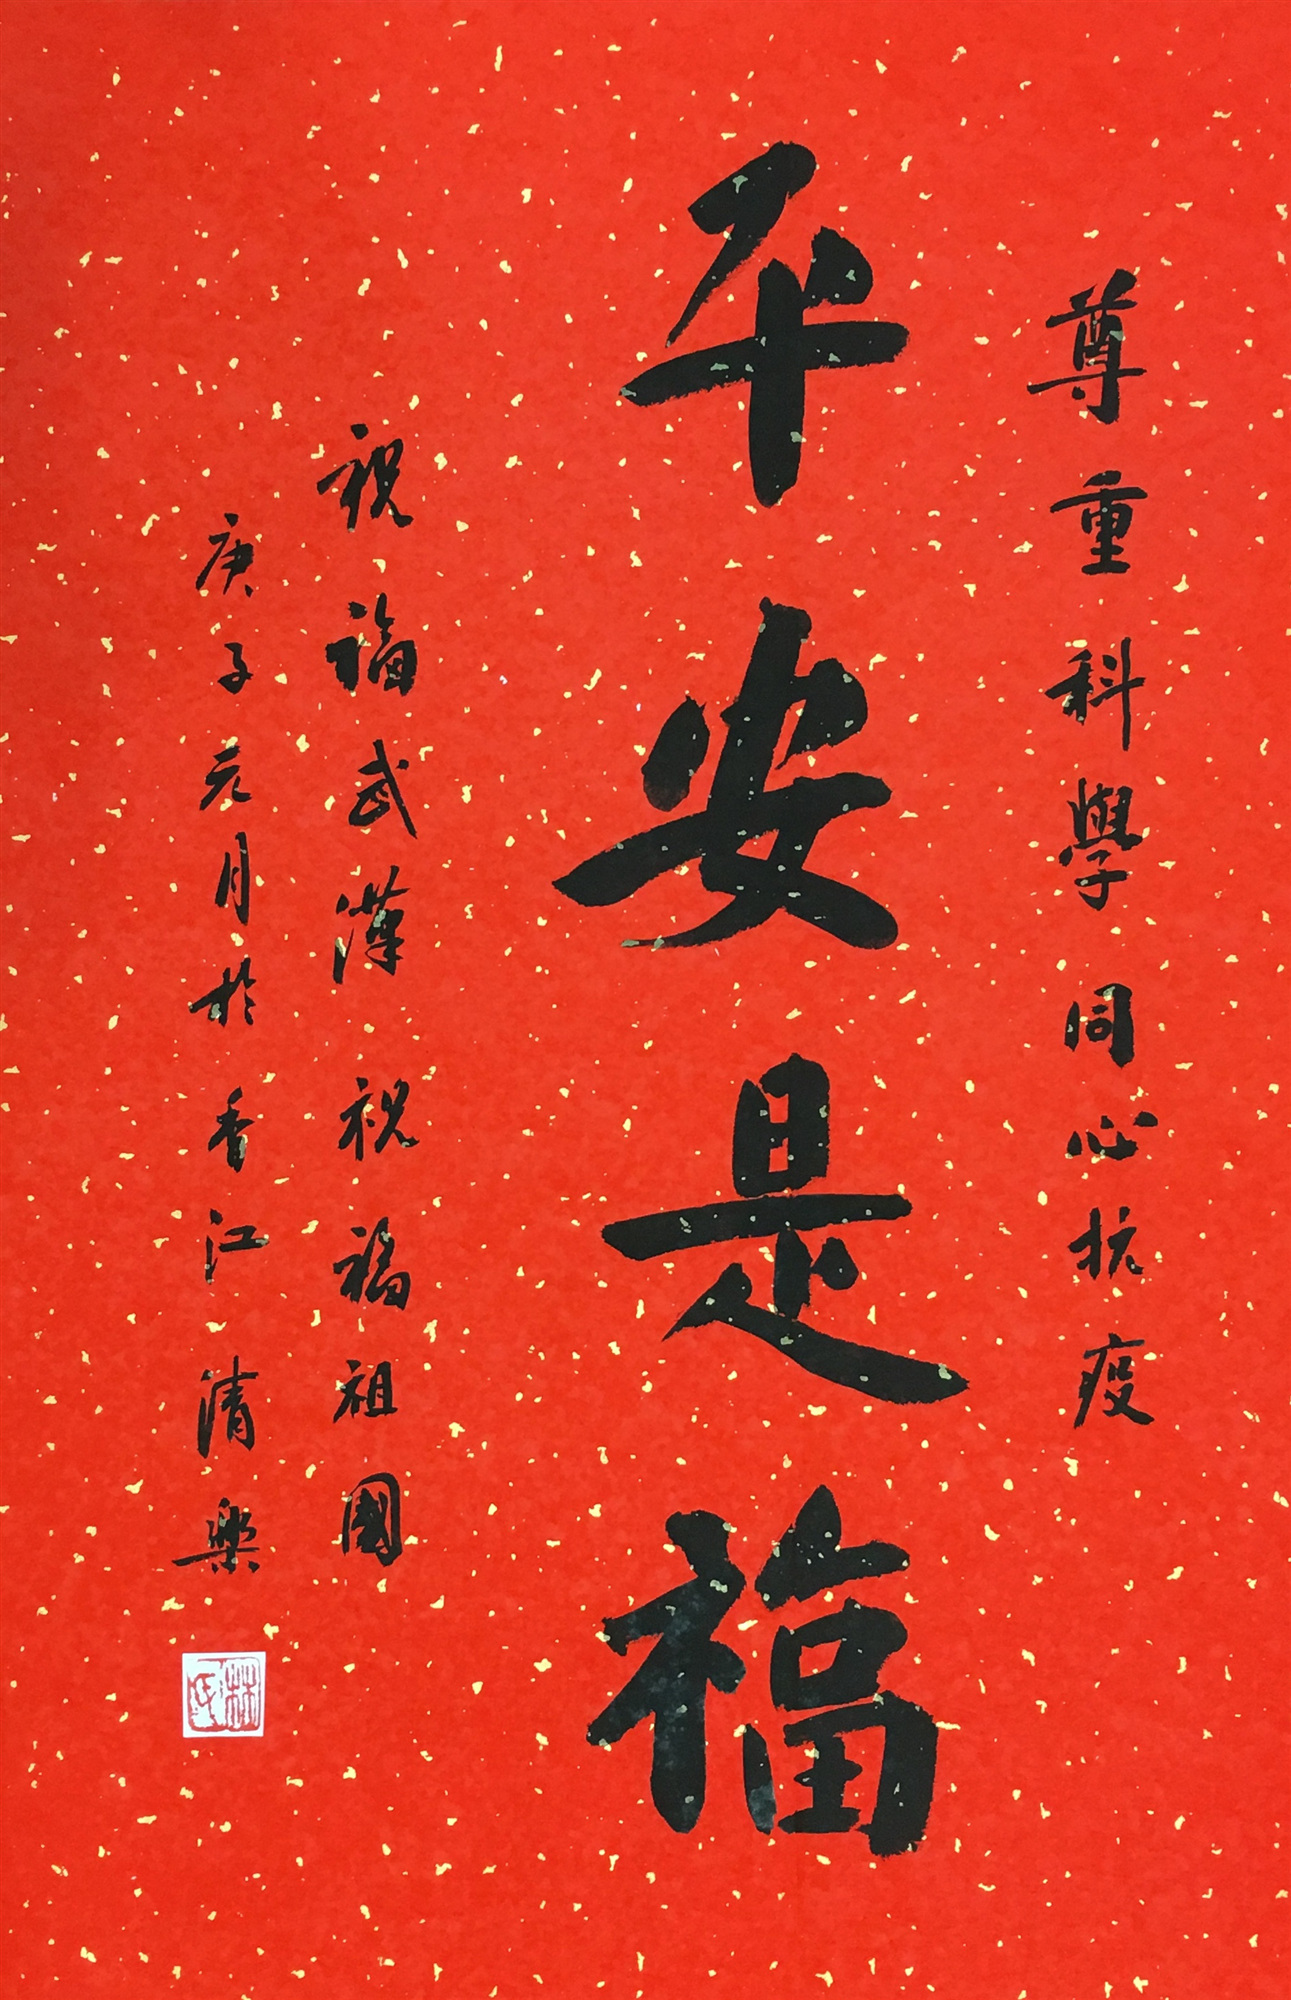 尊重科學同心抗疫
平安是福
祝福武漢祝福祖國
庚子元月於香江清樂
林氏